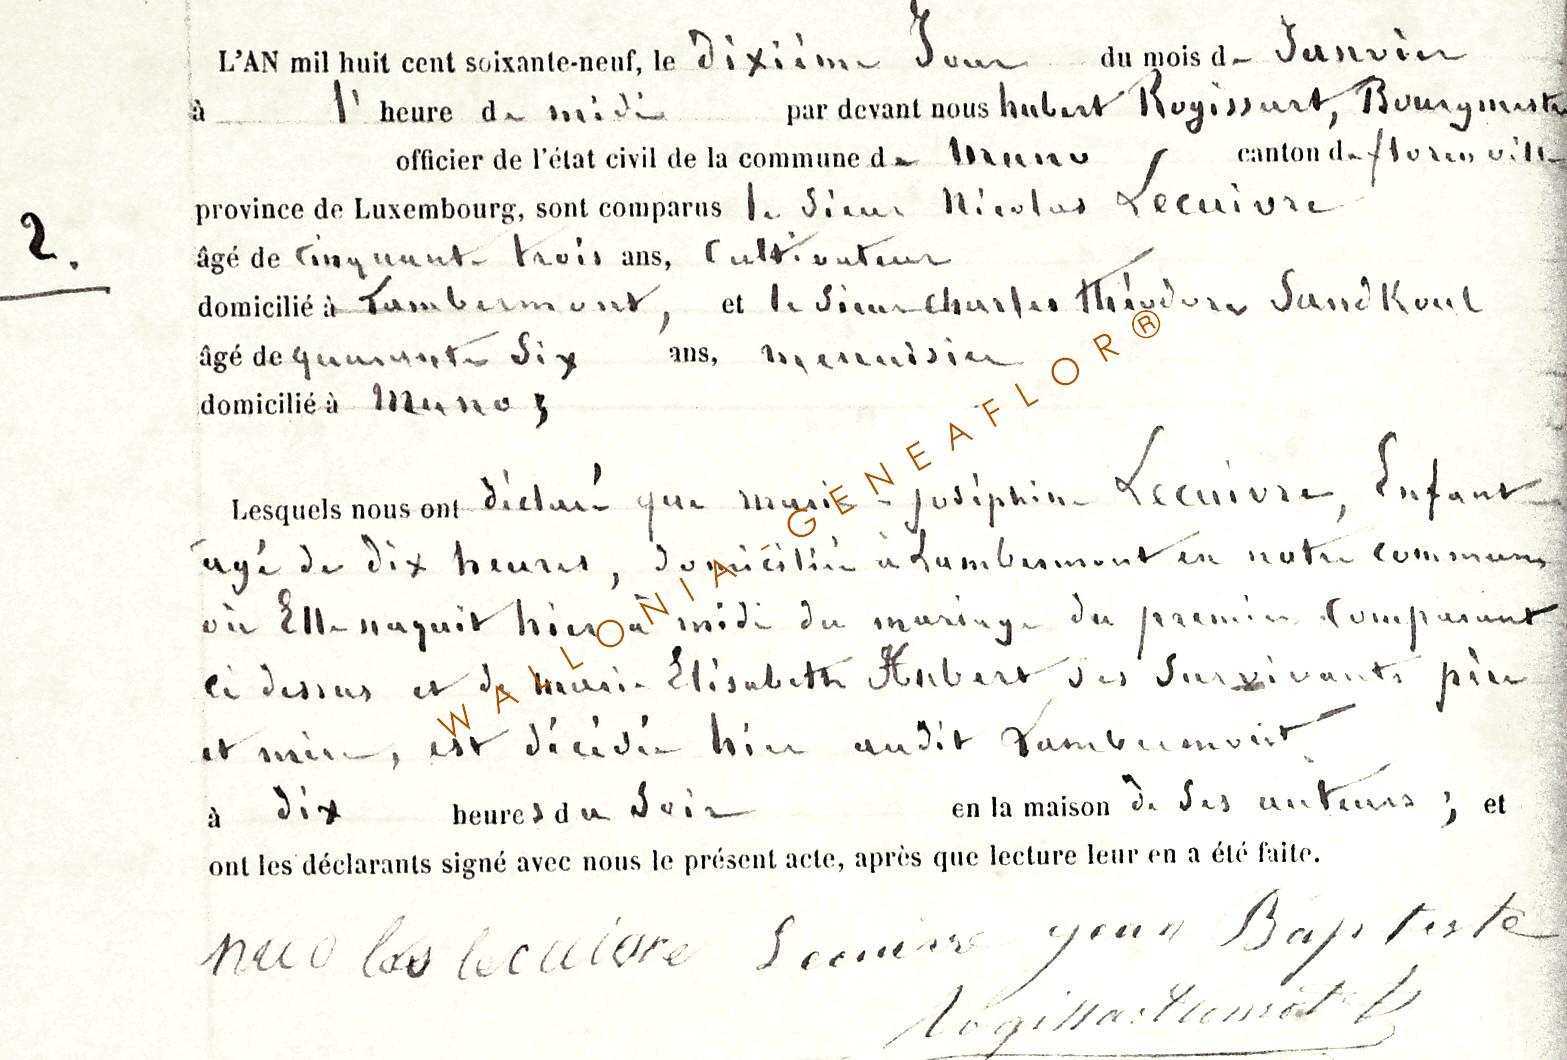 L'AN mil huit cent soixante-neuf, le dixième Jour du mois de Janvier
à l' heure de midi par devant nous hubert Rogissart, Bourgmestre
officier de l'état civil de la commune de Muno canton de florenville
2. province de Luxembourg, sont comparus le Sieur Nicolas Lecuivre
âgé de cinquante trois ans, Cultivateur
domicilié à Lambermont, et le Sieur Charles Théodore Sandkoul
âgé de quarante Six ans, menuisier
domicilié à Muno;
Lesquels nous ont déclaré que marie-joséphine Lecuivre, Enfant
agé de dix heures, domiciliée à Lambermont en notre commune
où Elle naquit hier à midi du mariage du premier Comparant
ci dessus et de marie Elisabeth Hubert ses Survivants père
et mère, est décédée hier audit Lambermont
à dix heures du Soir en la maison de Ses auteurs; et
ont les déclarants signé avec nous le présent acte, après que lecture leur en a été faite.
nicolas lecuivre Lecuivre jean Baptiste
Rogissart
WALLONIA-GENEAFLOR®